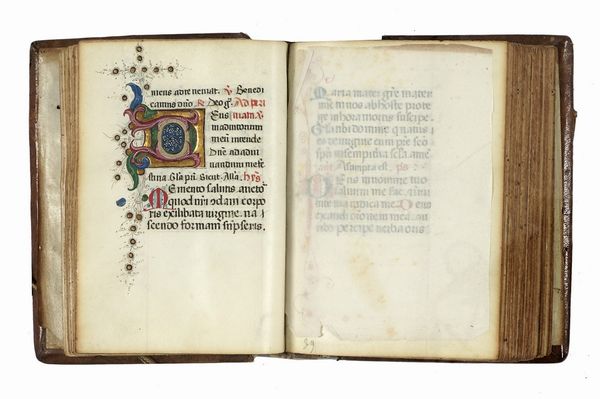 niens ad te veniat. ℣ Benedi
camus dño ℟ Deo g̃. Ad pri
Eus in aiu
in adiutorium
meũ intende
Dñe ad adiu
uandum me fe
stina. Gl'a pri. Sicut. All'a. hyɔ̃
Memento salutis auctor
quod nr̃i q̃dam corpo
ris ex illibata uirgine na
scendo formam sũpseris.
Maria mater gr̃e mater
mie tu nos ab hoste prote
ge in hora mortis suscipe.
Gloria tibi domine qui natus
es de uirgine cum pr̃e sc̃o
spũ in sempiterna secla. ame
Ant. Assumpta est. ps.
Deus in nomine tuo
saluum me fac in uir
tute tua iudica me. Deus
exaudi orõnem meã au
ribus percipe uerba oris
89